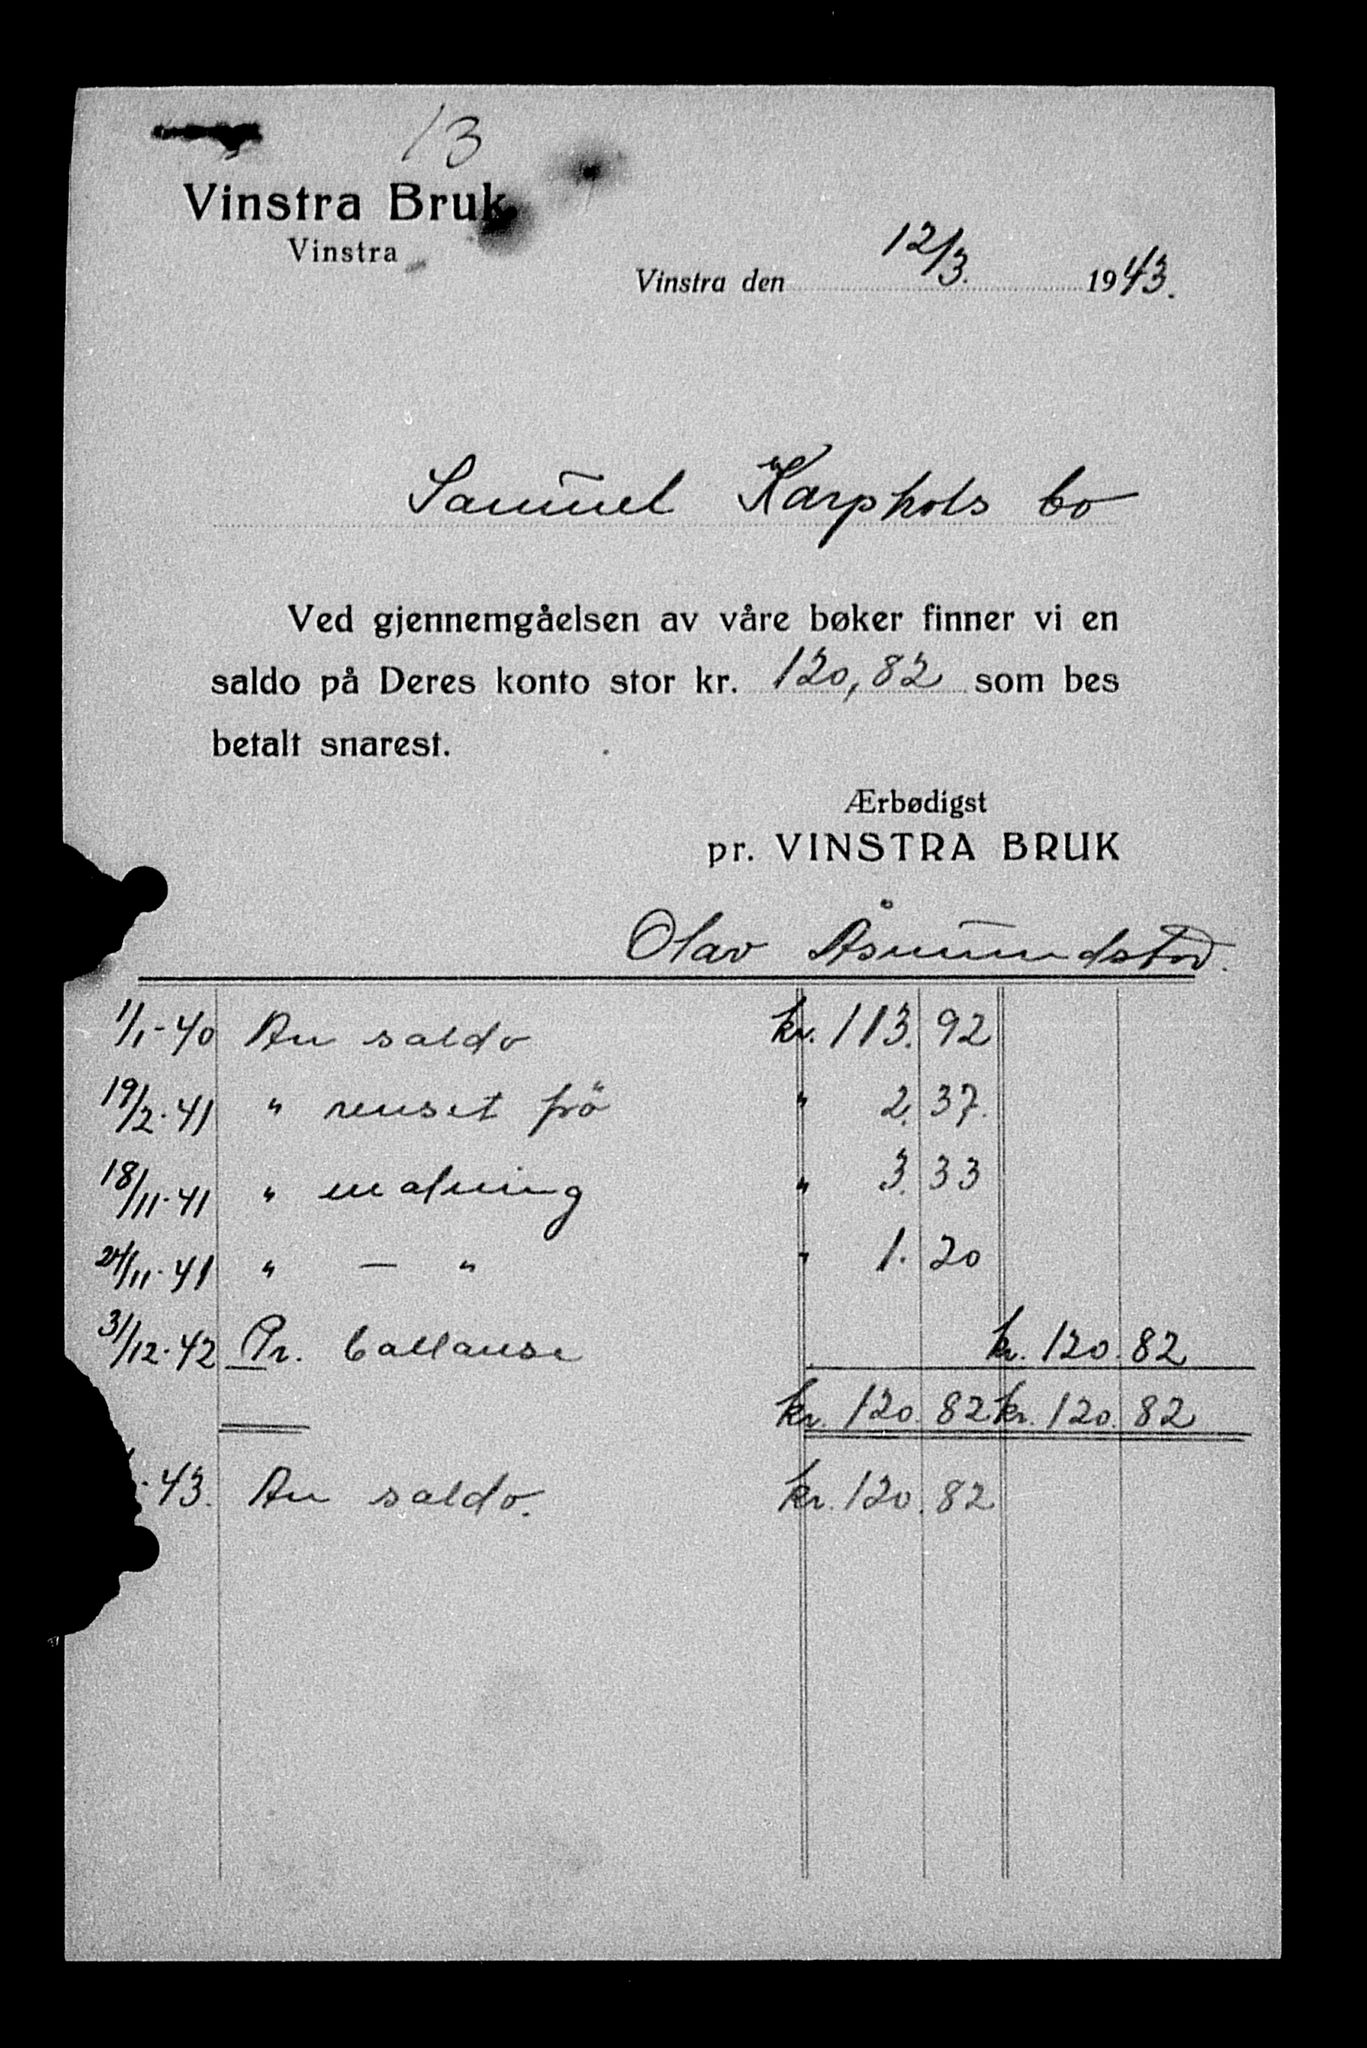 13
Vinstra Bruk
Vinstra
Vinstra den 12/3. 1943.
Samuel Karphols bo
Ved gjennemgåelsen av våre bøker finner vi en
saldo på Deres konto stor kr. 120,82 som bes
betalt snarest.
Ærbødigst
pr. VINSTRA BRUK
Olav Åsmundstad.
1/1-40 An saldo kr. 113. 92
19/2-41 " renset frö " 2. 37.
18/11-41 " malning " 3. 33
/11-41 " — " " 1. 20
31/12-42 Pr. ballanse kr. 120. 82
kr. 120. 82 kr. 120. 82
-43. An saldo. kr. 120. 82